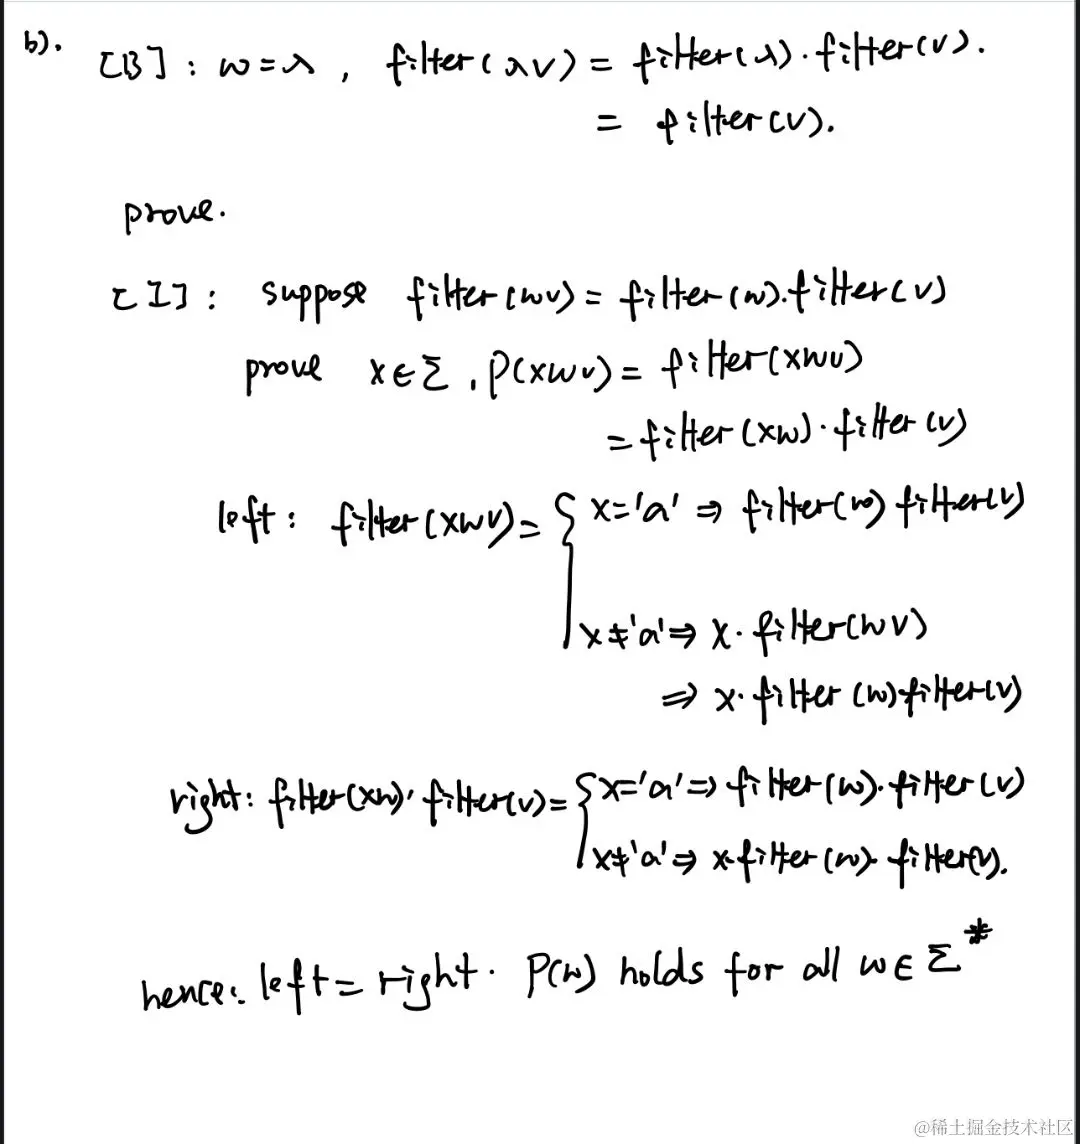 b). [B] : w = λ , filter(λv) = filter(λ)·filter(v).
= filter(v).
prove.
[I] : suppose filter(wv) = filter(w).filter(v)
prove x∈Σ , P(xwv) = filter(xwv)
= filter(xw)·filter(v)
left : filter(xwv) = { x='a' ⇒ filter(w) filter(v)
x≠'a' ⇒ x·filter(wv)
⇒ x·filter(w)filter(v)
right: filter(xw)·filter(v) = { x='a' ⇒ filter(w)·filter(v)
x≠'a' ⇒ x·filter(w)·filter(v).
hence: left = right. P(w) holds for all w∈Σ*
@稀土掘金技术社区